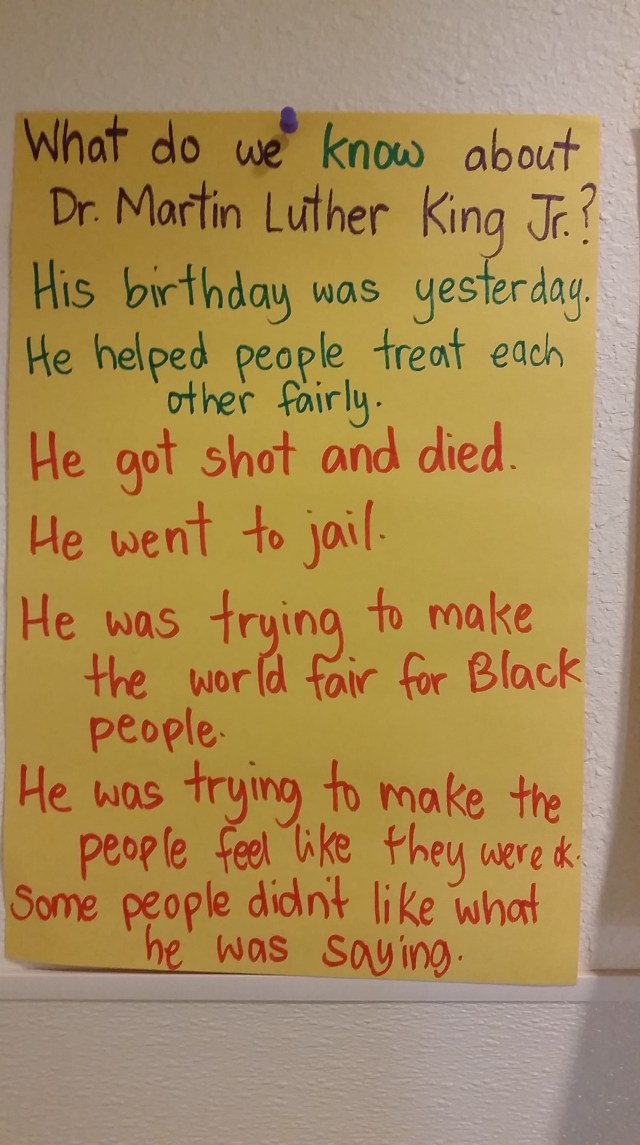 What do we know about
Dr. Martin Luther King Jr.?
His birthday was yesterday.
He helped people treat each
other fairly.
He got shot and died.
He went to jail.
He was trying to make
the world fair for Black
people.
He was trying to make the
people feel like they were ok.
Some people didn't like what
he was saying.